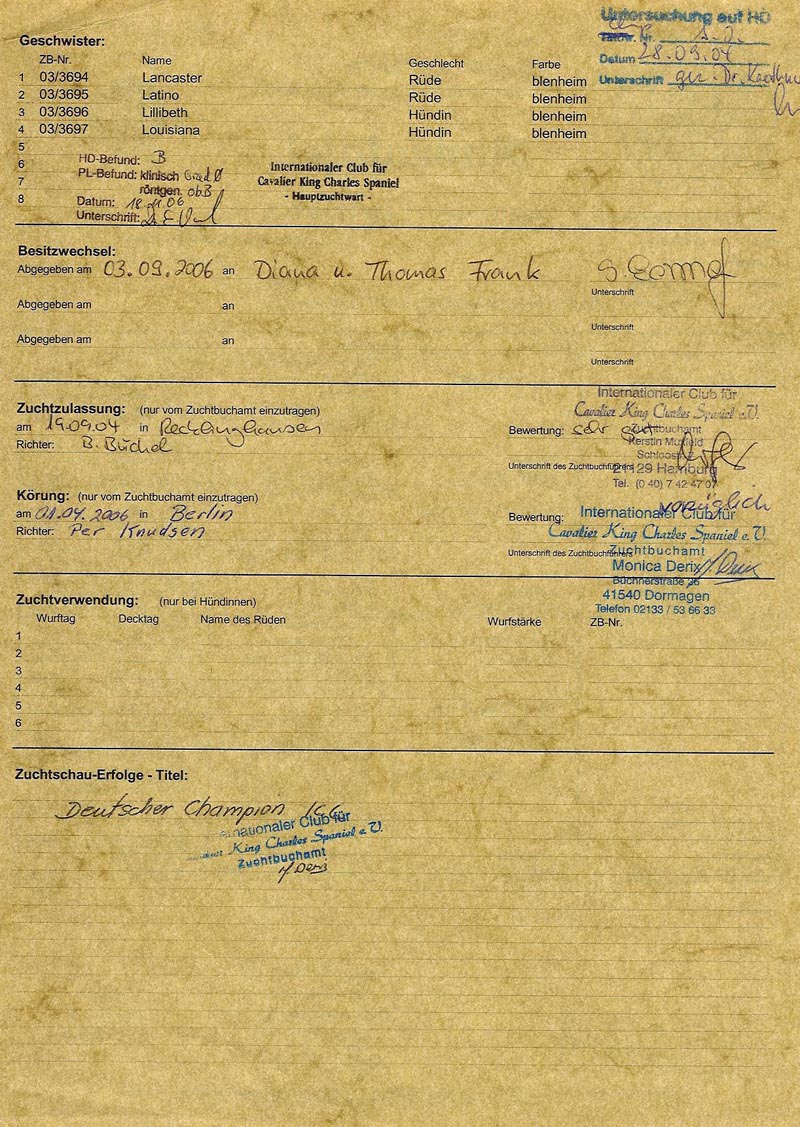 Untersuchung auf HD
Tätow. Nr.
Geschwister:
Datum 28.09.04
ZB-Nr. Name Geschlecht Farbe
Unterschrift gez. Dr.
1 03/3694 Lancaster Rüde blenheim
2 03/3695 Latino Rüde blenheim
3 03/3696 Lillibeth Hündin blenheim
4 03/3697 Louisiana Hündin blenheim
5
6
7
8
HD-Befund: B
PL-Befund: klinisch Grad 0
röntgen. obB
Datum: 18.11.06
Unterschrift:
Internationaler Club für
Cavalier King Charles Spaniel
- Hauptzuchtwart -
Besitzwechsel:
Abgegeben am 03.09.2006 an Diana u. Thomas Frank
Unterschrift
Abgegeben am an
Unterschrift
Abgegeben am an
Unterschrift
Zuchtzulassung: (nur vom Zuchtbuchamt einzutragen)
am 19.09.04 in Recklinghausen
Richter: B. Büchel
Bewertung: sehr gut
Unterschrift des Zuchtbuchführers
Internationaler Club für
Cavalier King Charles Spaniel e.V.
Zuchtbuchamt
Kerstin
21129 Hamburg
Tel. (0 40) 7 42 47 07
Körung: (nur vom Zuchtbuchamt einzutragen)
am 01.04.2006 in Berlin
Richter: Per Knudsen
Bewertung: vorzüglich
Unterschrift des Zuchtbuchführers
Internationaler Club für
Cavalier King Charles Spaniel e.V.
Zuchtbuchamt
Monica Derix
Büchnerstraße
41540 Dormagen
Telefon 02133 / 53 66 33
Zuchtverwendung: (nur bei Hündinnen)
Wurftag Decktag Name des Rüden Wurfstärke ZB-Nr.
1
2
3
4
5
6
Zuchtschau-Erfolge - Titel:
Deutscher Champion ICC
Internationaler Club für
King Charles Spaniel e.V.
Zuchtbuchamt